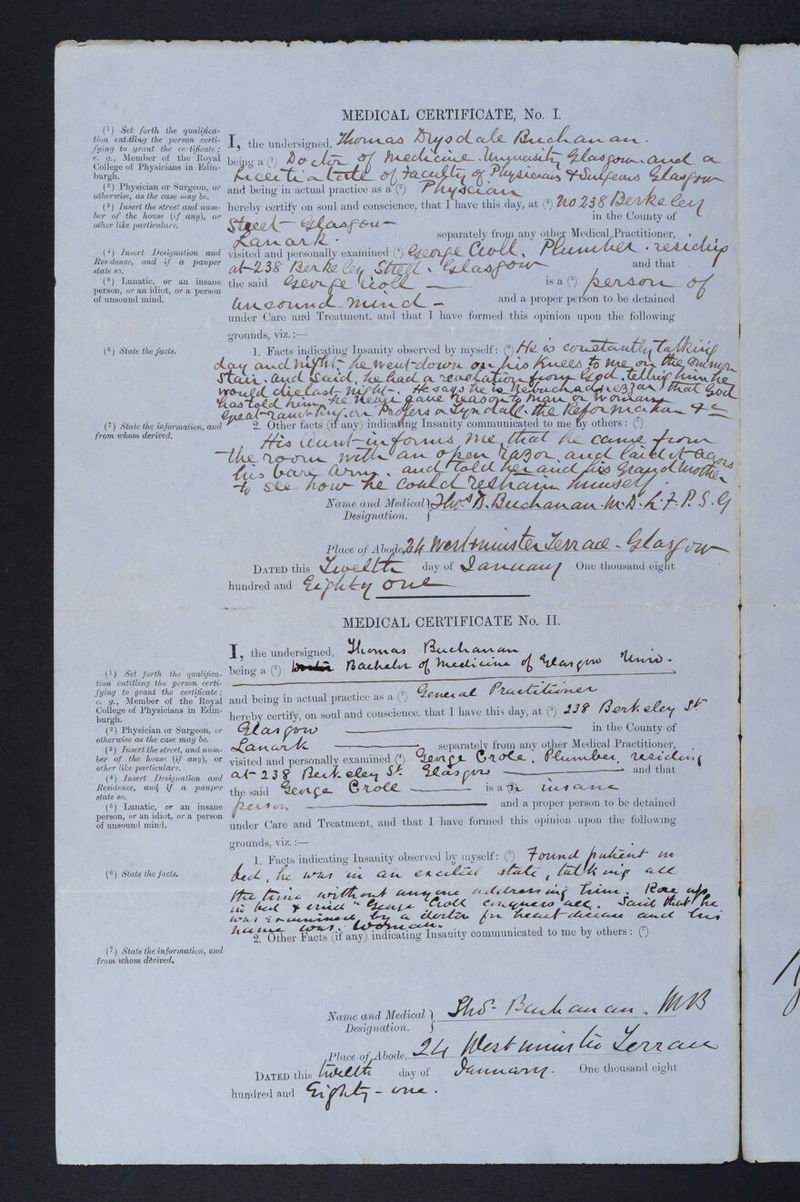 MEDICAL CERTIFICATE, No. I.
(1) Set forth the qualifica-
tion entitling the person certi-
fying to grant the certificate;
e. g., Member of the Royal
College of Physicians in Edin-
burgh.
(2) Physician or Surgeon, or
otherwise, as the case may be.
(3) Insert the street and num-
ber of the house (if any), or
other like particulars.
(4) Insert Designation and
Residence, and if a pauper
state so.
(5) Lunatic, or an insane
person, or an idiot, or a person
of unsound mind.
(6) State the facts.
(7) State the information, and
from whom derived.
I, the undersigned, Thomas Drysdale Buchanan.
being a (1) Doctor of Medicine. University Glasgow and a
Licentiate of Faculty of Physicians & Surgeons Glasgow
and being in actual practice as a (2) Physician
hereby certify on soul and conscience, that I have this day, at (3) No 238 Berkeley
Street Glasgow in the County of
Lanark. separately from any other Medical Practitioner,
visited and personally examined (4) George Croll. Plumber. residing
at 238 Berkeley Street. Glasgow and that
the said George Croll is a (5) person of
unsound mind - and a proper person to be detained
under Care and Treatment, and that I have formed this opinion upon the following
grounds, viz.:—
1. Facts indicating Insanity observed by myself: (6) He is constantly talking
day and night. he went down on his knees to me on the common
stair. and said, he had a revelation from God. telling him he
would die last night. He says he is that God
has told him, he never gave reason to man or woman.
Great ranting, on the Reformation &c
2. Other facts (if any) indicating Insanity communicated to me by others: (7)
His Aunt informs me, that he came from
the room with an open razor, and laid it across
his bare arm. and told her and his Grandmother
to see how he could restrain himself.
Name and Medical Designation. } Thos D. Buchanan M.D. L.F.P.S.G
Place of Abode 24 Westminster Terrace - Glasgow
DATED this Twelfth day of January One thousand eight
hundred and Eighty One
MEDICAL CERTIFICATE No. II.
(1) Set forth the qualifica-
tion entitling the person certi-
fying to grant the certificate;
e. g., Member of the Royal
College of Physicians in Edin-
burgh.
(2) Physician or Surgeon, or
otherwise as the case may be.
(3) Insert the street, and num-
ber of the house (if any), or
other like particulars.
(4) Insert Designation and
Residence, and if a pauper
state so.
(5) Lunatic, or an insane
person, or an idiot, or a person
of unsound mind.
(6) State the facts.
(7) State the information, and
from whom derived.
I, the undersigned, Thomas Buchanan
being a (1) Bachelor of Medicine of Glasgow Univ.
and being in actual practice as a (2) General Practitioner
hereby certify, on soul and conscience, that I have this day, at (3) 238 Berkeley St
Glasgow in the County of
Lanark separately from any other Medical Practitioner,
visited and personally examined (4) George Croll. Plumber, residing
at 238 Berkeley St. Glasgow and that
the said George Croll is a (5) insane
person and a proper person to be detained
under Care and Treatment, and that I have formed this opinion upon the following
grounds, viz.:—
1. Facts indicating Insanity observed by myself: (6) Found patient in
bed, he was in an excited state, talking all
the time without anyone addressing him. Rose up
in bed & cried "George Croll conquers all. Said that he
was examined by a doctor for heart disease and his
name was. Woman.
2. Other Facts (if any) indicating Insanity communicated to me by others: (7)
Name and Medical Designation. } Thos. Buchanan. MB
Place of Abode, 24 Westminster Terrace
DATED this twelfth day of January. One thousand eight
hundred and Eighty - one.